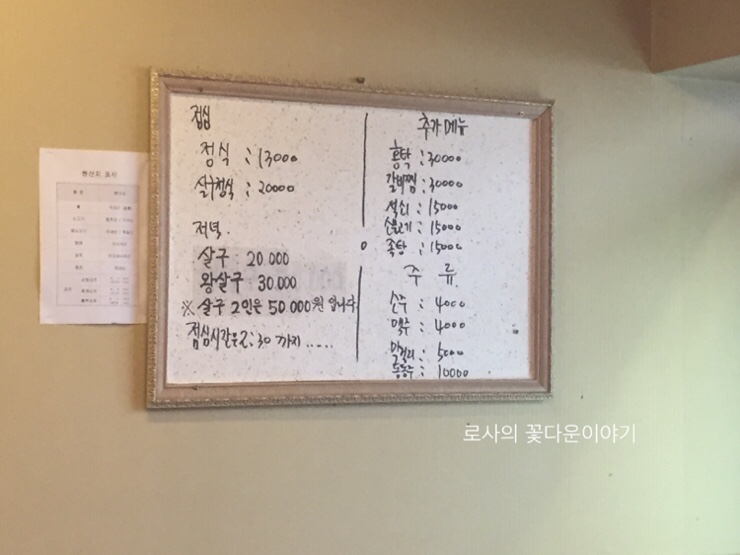 점심
정식 : 13000
살구정식 : 20000
저녁.
살구 : 20.000
왕살구 : 30.000
※ 살구 2인은 50.000원 입니다.
점심시간은 2:30 까지.....
추가메뉴
홍탁 : 30000
갈비찜 : 30000
석쇠 : 15000
: 15000
족탕 : 15000
주 류.
소주 : 4000
맥주 : 4000
막걸리 : 5000
동동주 : 10000
원산지 표시
로사의 꽃다운이야기